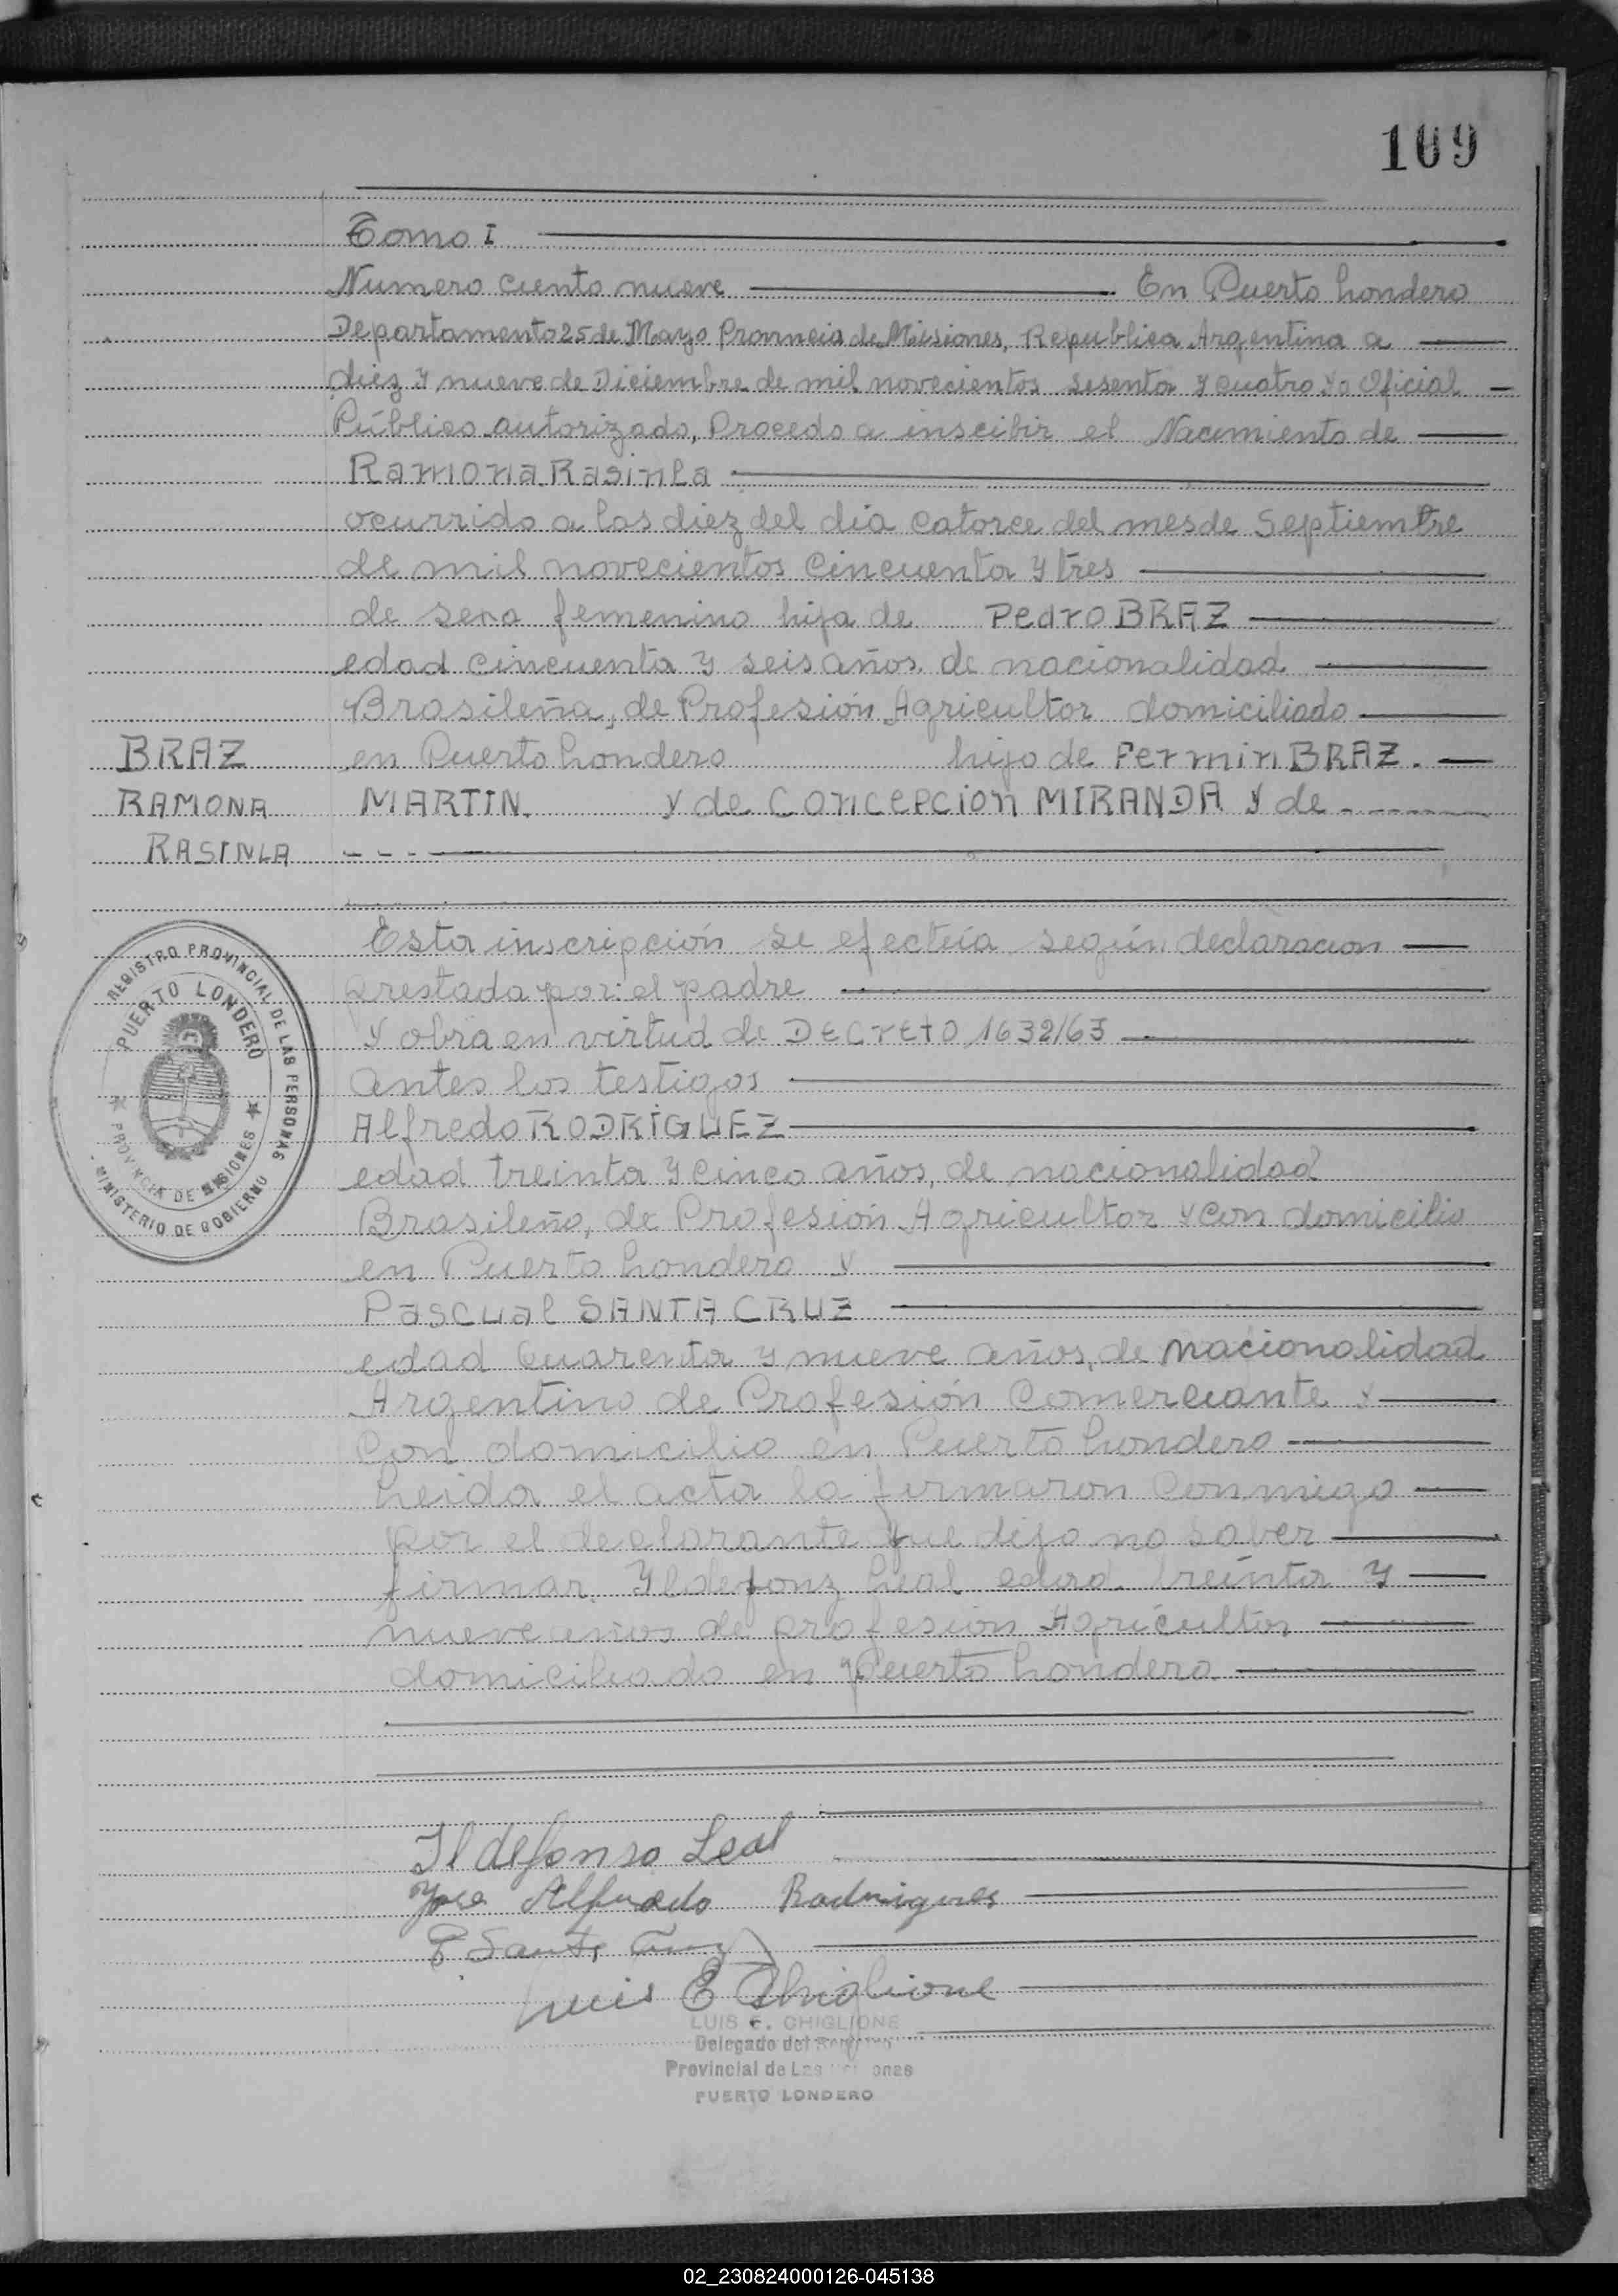 109
Tomo I
Numero ciento nueve En Puerto Londero
Departamento 25 de Mayo Provincia de Misiones, Republica Argentina a
diez y nueve de Diciembre de mil novecientos sesenta y cuatro Yo Oficial
Público autorizado, Procedo a inscibir el Nacimiento de
Ramona Rasinla
ocurrido a las diez del dia catorce del mes de Septiembre
de mil novecientos cincuenta y tres
de sexo femenino hija de Pedro BRAZ
edad cincuenta y seis años de nacionalidad
Brasileña, de Profesión Agricultor domiciliado
BRAZ en Puerto Londero hijo de Fermin BRAZ.
RAMONA MARTIN. y de Concepcion MIRANDA y de
RASINLA
Esta inscripción se efectúa según declaracion
prestada por el padre
y obra en virtud de Decreto 1632/63
antes los testigos
Alfredo RODRIGUEZ
edad treinta y cinco años, de nacionalidad
Brasileño, de Profesión Agricultor y con domicilio
en Puerto Londero y
Pascual SANTA CRUZ
edad Cuarenta y nueve años, de nacionalidad
Argentino de Profesión Comerciante y
Con domicilio en Puerto Londero
Leida el acta la firmaron Conmigo
por el declarante que dijo no saber
firmar. Yldefonz Leal edad treinta y
nueve años de profesión Agricultor
domiciliado en Puerto Londero
REGISTRO PROVINCIAL DE LAS PERSONAS
PUERTO LONDERO
PROVINCIA DE MISIONES
MINISTERIO DE GOBIERNO
Ildefonso Leal
Alfredo Rodrigues
P Santa Cruz
Luis E Ghiglione
LUIS E. GHIGLIONE
Delegado del Registro
Provincial de Las Personas
PUERTO LONDERO
02_230824000126-045138